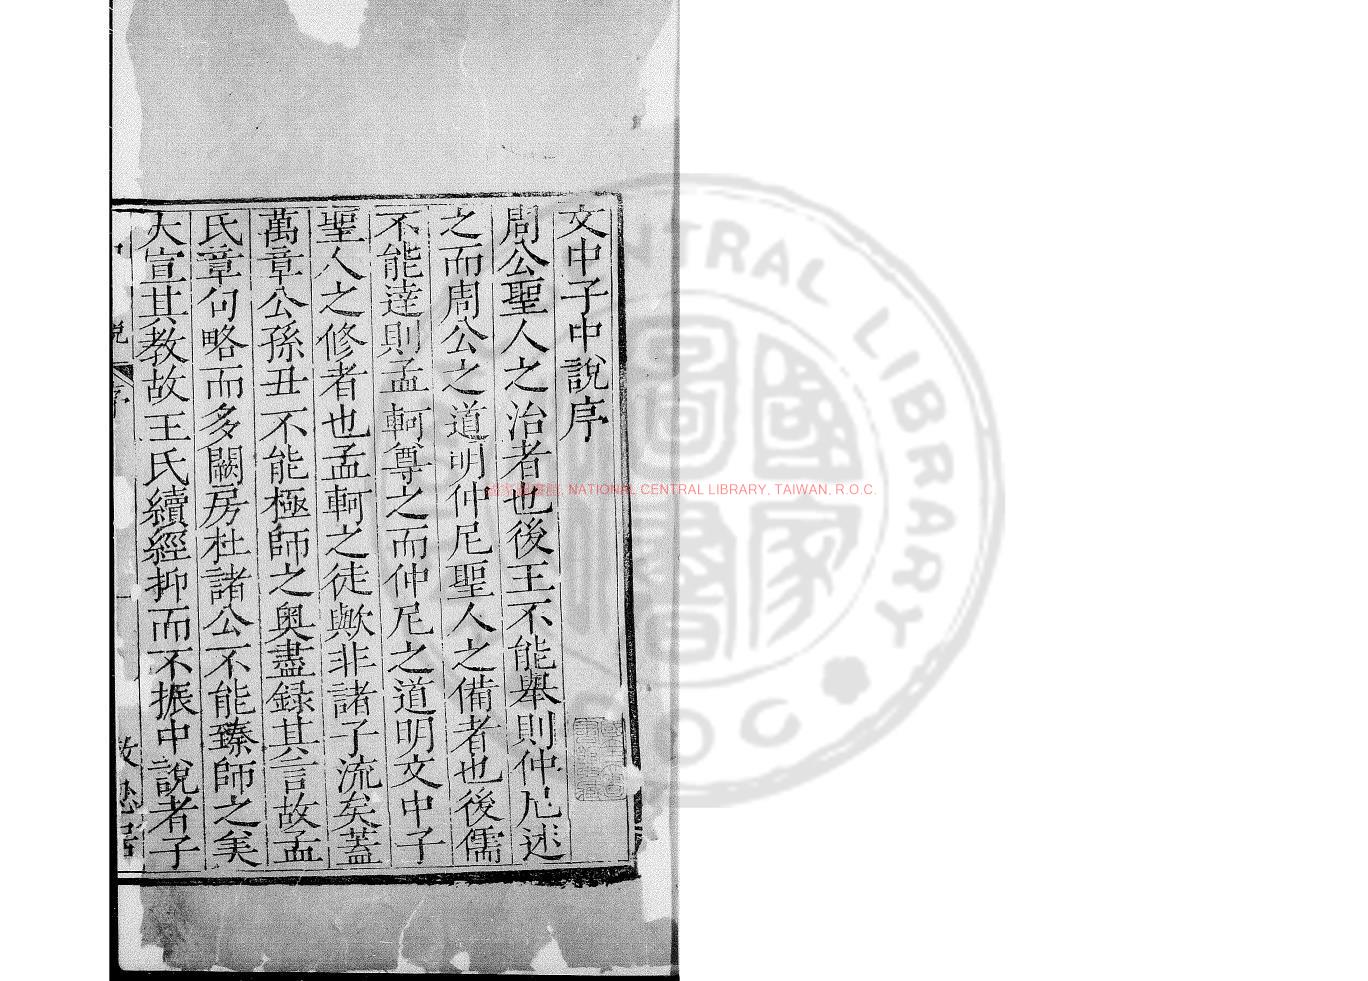 文中子中說序
周公聖人之治者也後王不能舉則仲尼述
之而周公之道明仲尼聖人之備者也後儒
不能達則孟軻尊之而仲尼之道明文中子
聖人之修者也孟軻之徒歟非諸子流矣蓋
萬章公孫丑不能極師之奧盡録其言故孟
氏章句略而多闕房杜諸公不能臻師之美
大宣其教故王氏續經抑而不振中說者子
說 序
敬忍居
國家圖書館, NATIONAL CENTRAL LIBRARY, TAIWAN, R.O.C.
NATIONAL CENTRAL LIBRARY
ROC